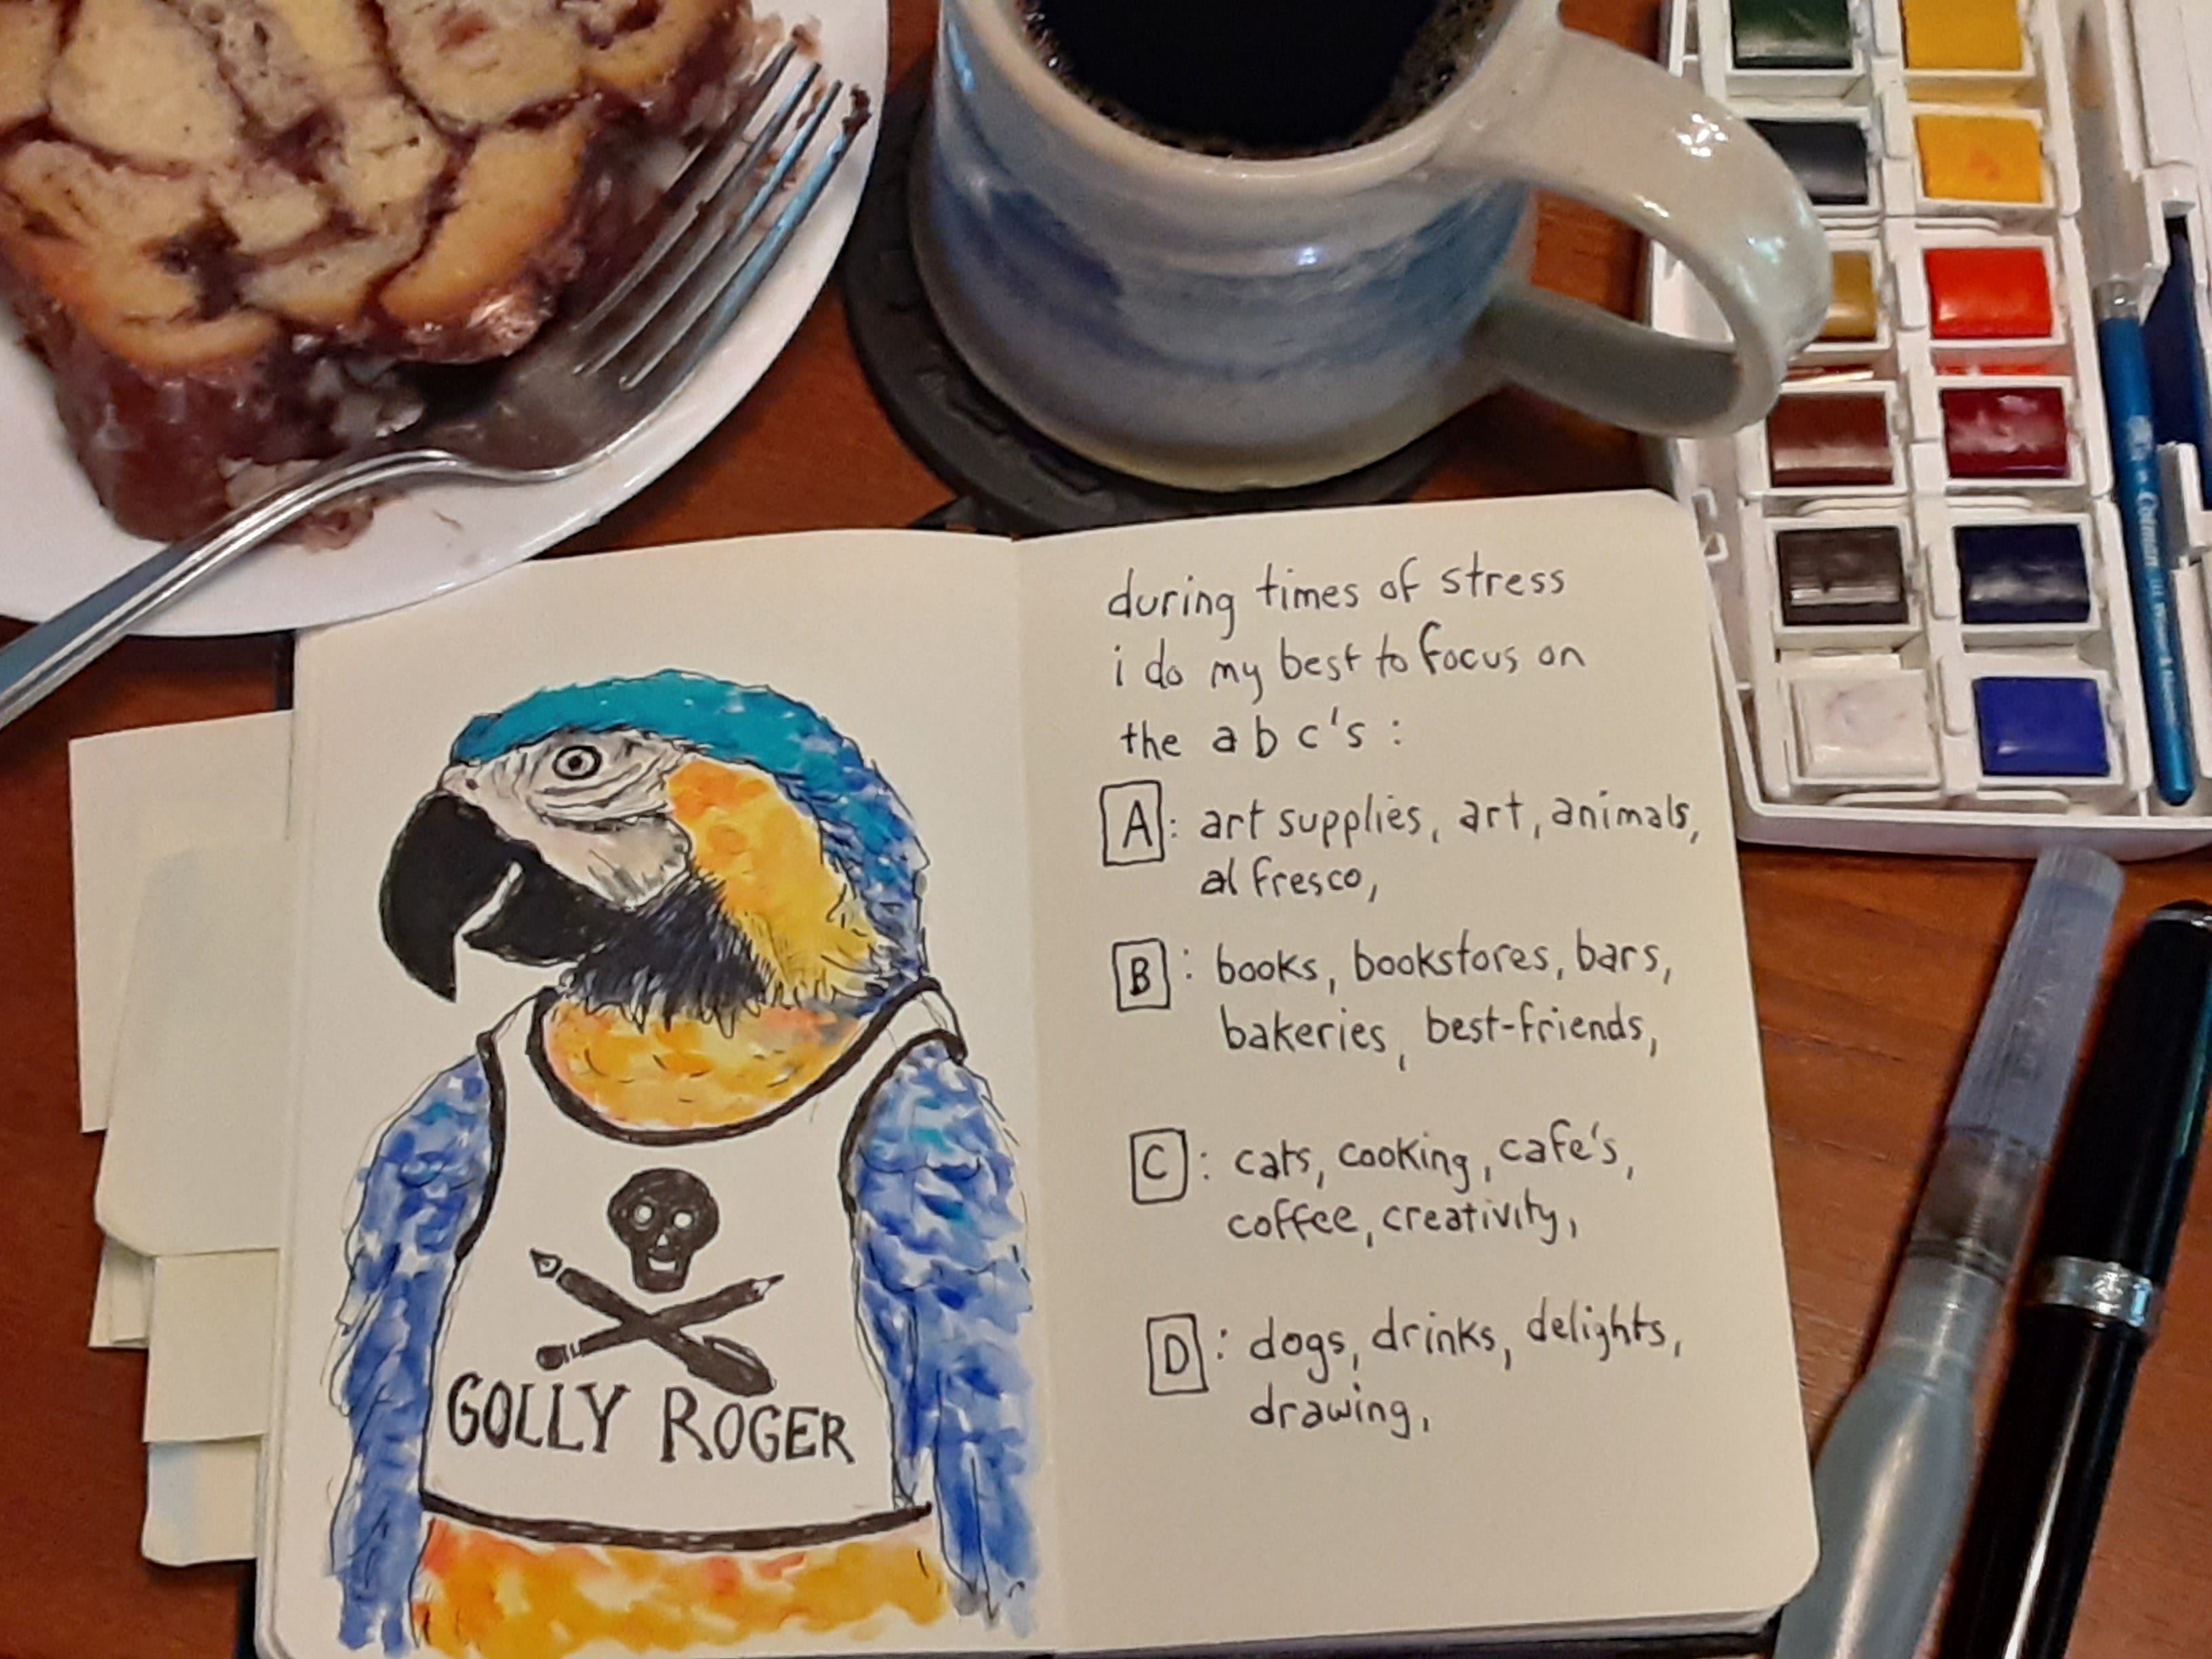 during times of stress
i do my best to focus on
the a b c's :
A : art supplies, art, animals,
al fresco,
B : books, bookstores, bars,
bakeries, best-friends,
C : cats, cooking, cafe's,
coffee, creativity,
D : dogs, drinks, delights,
drawing,
GOLLY ROGER
Cotman